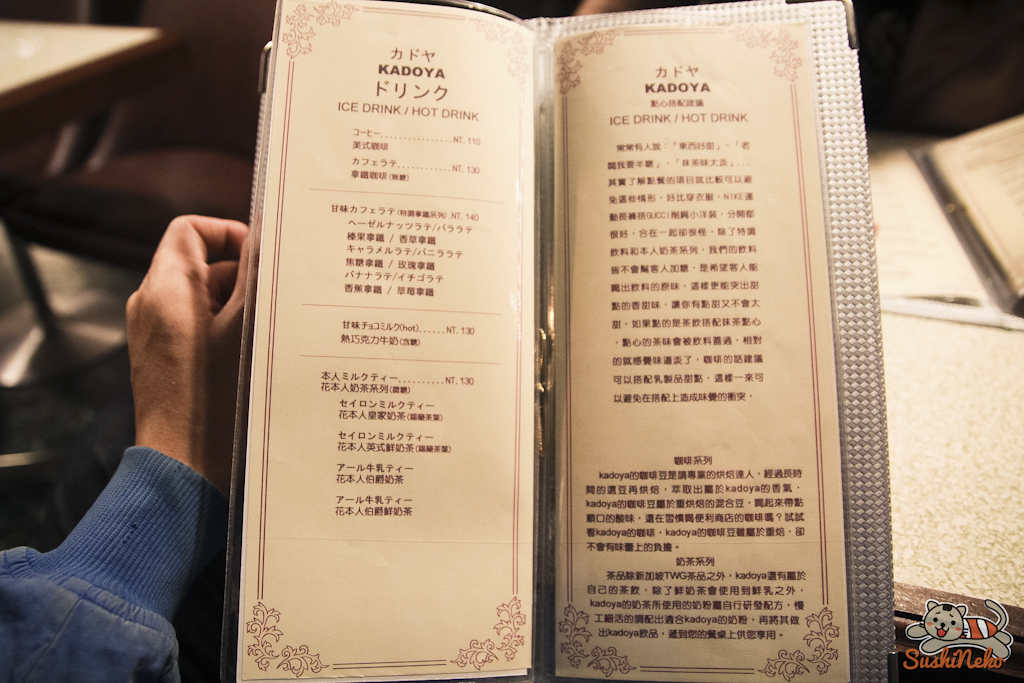 カドヤ
KADOYA
ドリンク
ICE DRINK / HOT DRINK
コーヒー...............NT. 110
美式咖啡
カフェラテ............NT. 130
拿鐵咖啡(無糖)
甘味カフェラテ(特調拿鐵系列) NT. 140
ヘーゼルナッツラテ/バララテ
榛果拿鐵 / 香草拿鐵
キャラメルラテ/バニララテ
焦糖拿鐵 / 玫瑰拿鐵
バナナラテ/イチゴラテ
香蕉拿鐵 / 草莓拿鐵
甘味チョコミルク(hot)......NT. 130
熱巧克力牛奶(含糖)
本人ミルクティー..........NT. 130
花本人奶茶系列(微糖)
セイロンミルクティー
花本人皇家奶茶(錫蘭茶葉)
セイロンミルクティー
花本人英式鮮奶茶(錫蘭茶葉)
アール牛乳ティー
花本人伯爵奶茶
アール牛乳ティー
花本人伯爵鮮奶茶
カドヤ
KADOYA
點心搭配建議
ICE DRINK / HOT DRINK
常常有人說:「東西好甜」、「老
闆我要半糖」、「抹茶味太淡」...
其實了解點餐的項目就比較可以避
免這些情形，好比穿衣服，NIKE運
動長褲搭GUCCI削肩小洋裝，分開都
很好，合在一起卻很怪，除了特調
飲料和本人奶茶系列，我們的飲料
皆不會幫客人加糖，是希望客人能
喝出飲料的原味，這樣更能突出甜
點的香甜味，讓你有點甜又不會太
甜，如果點的是茶飲搭配抹茶點心
，點心的茶味會被飲料蓋過，相對
的就感覺味道淡了，咖啡的話建議
可以搭配乳製品甜點，這樣一來可
以避免在搭配上造成味覺的衝突，
咖啡系列
kadoya的咖啡豆是請專業的烘焙達人，經過長時
間的選豆再烘焙，萃取出屬於kadoya的香氣，
kadoya的咖啡豆屬於重烘焙的混合豆，喝起來帶點
順口的酸味，還在習慣喝便利商店的咖啡嗎？試試
看kadoya的咖啡，kadoya的咖啡豆雖屬於重焙，卻
不會有味蕾上的負擔。
奶茶系列
茶品除新加坡TWG茶品之外，kadoya還有屬於
自己的茶飲，除了鮮奶茶會使用到鮮乳之外，
kadoya的奶茶所使用的奶粉屬自行研發配方，慢
工細活的調配出適合kadoya的奶粉，再將其做
出kadoya飲品，遞到您的餐桌上供您享用。
SushiNeko